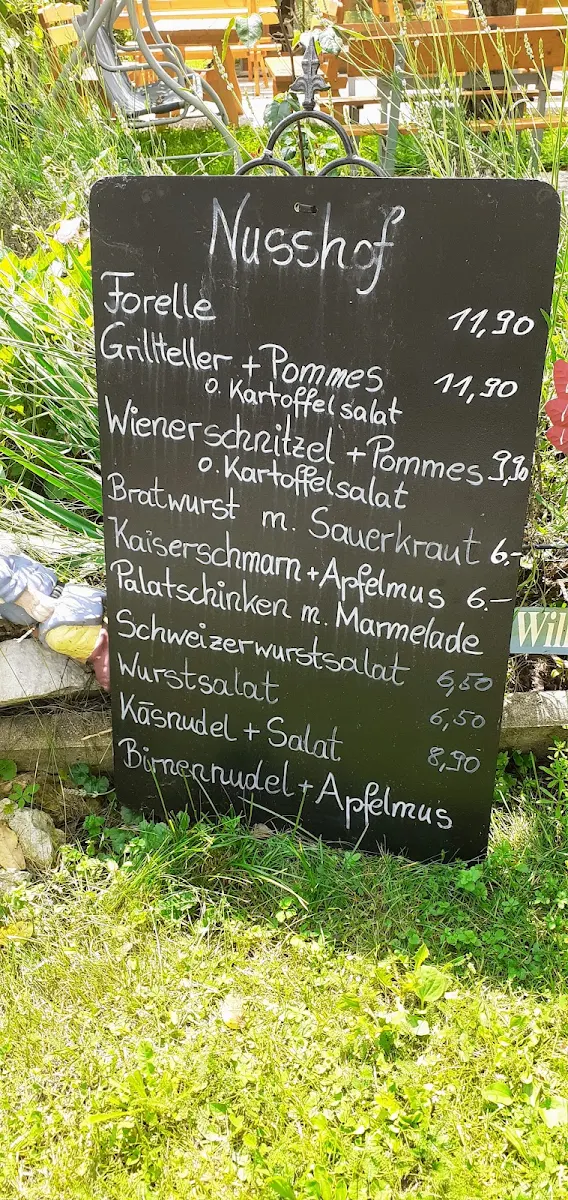 Nusshof
Forelle 11,90
Grillteller + Pommes 11,90
o. Kartoffelsalat
Wienerschnitzel + Pommes 9,90
o. Kartoffelsalat
Bratwurst m. Sauerkraut 6.-
Kaiserschmarn + Apfelmus 6.-
Palatschinken m. Marmelade
Schweizerwurstsalat 6,50
Wurstsalat 6,50
Käsnudel + Salat 8,90
Birnennudel + Apfelmus